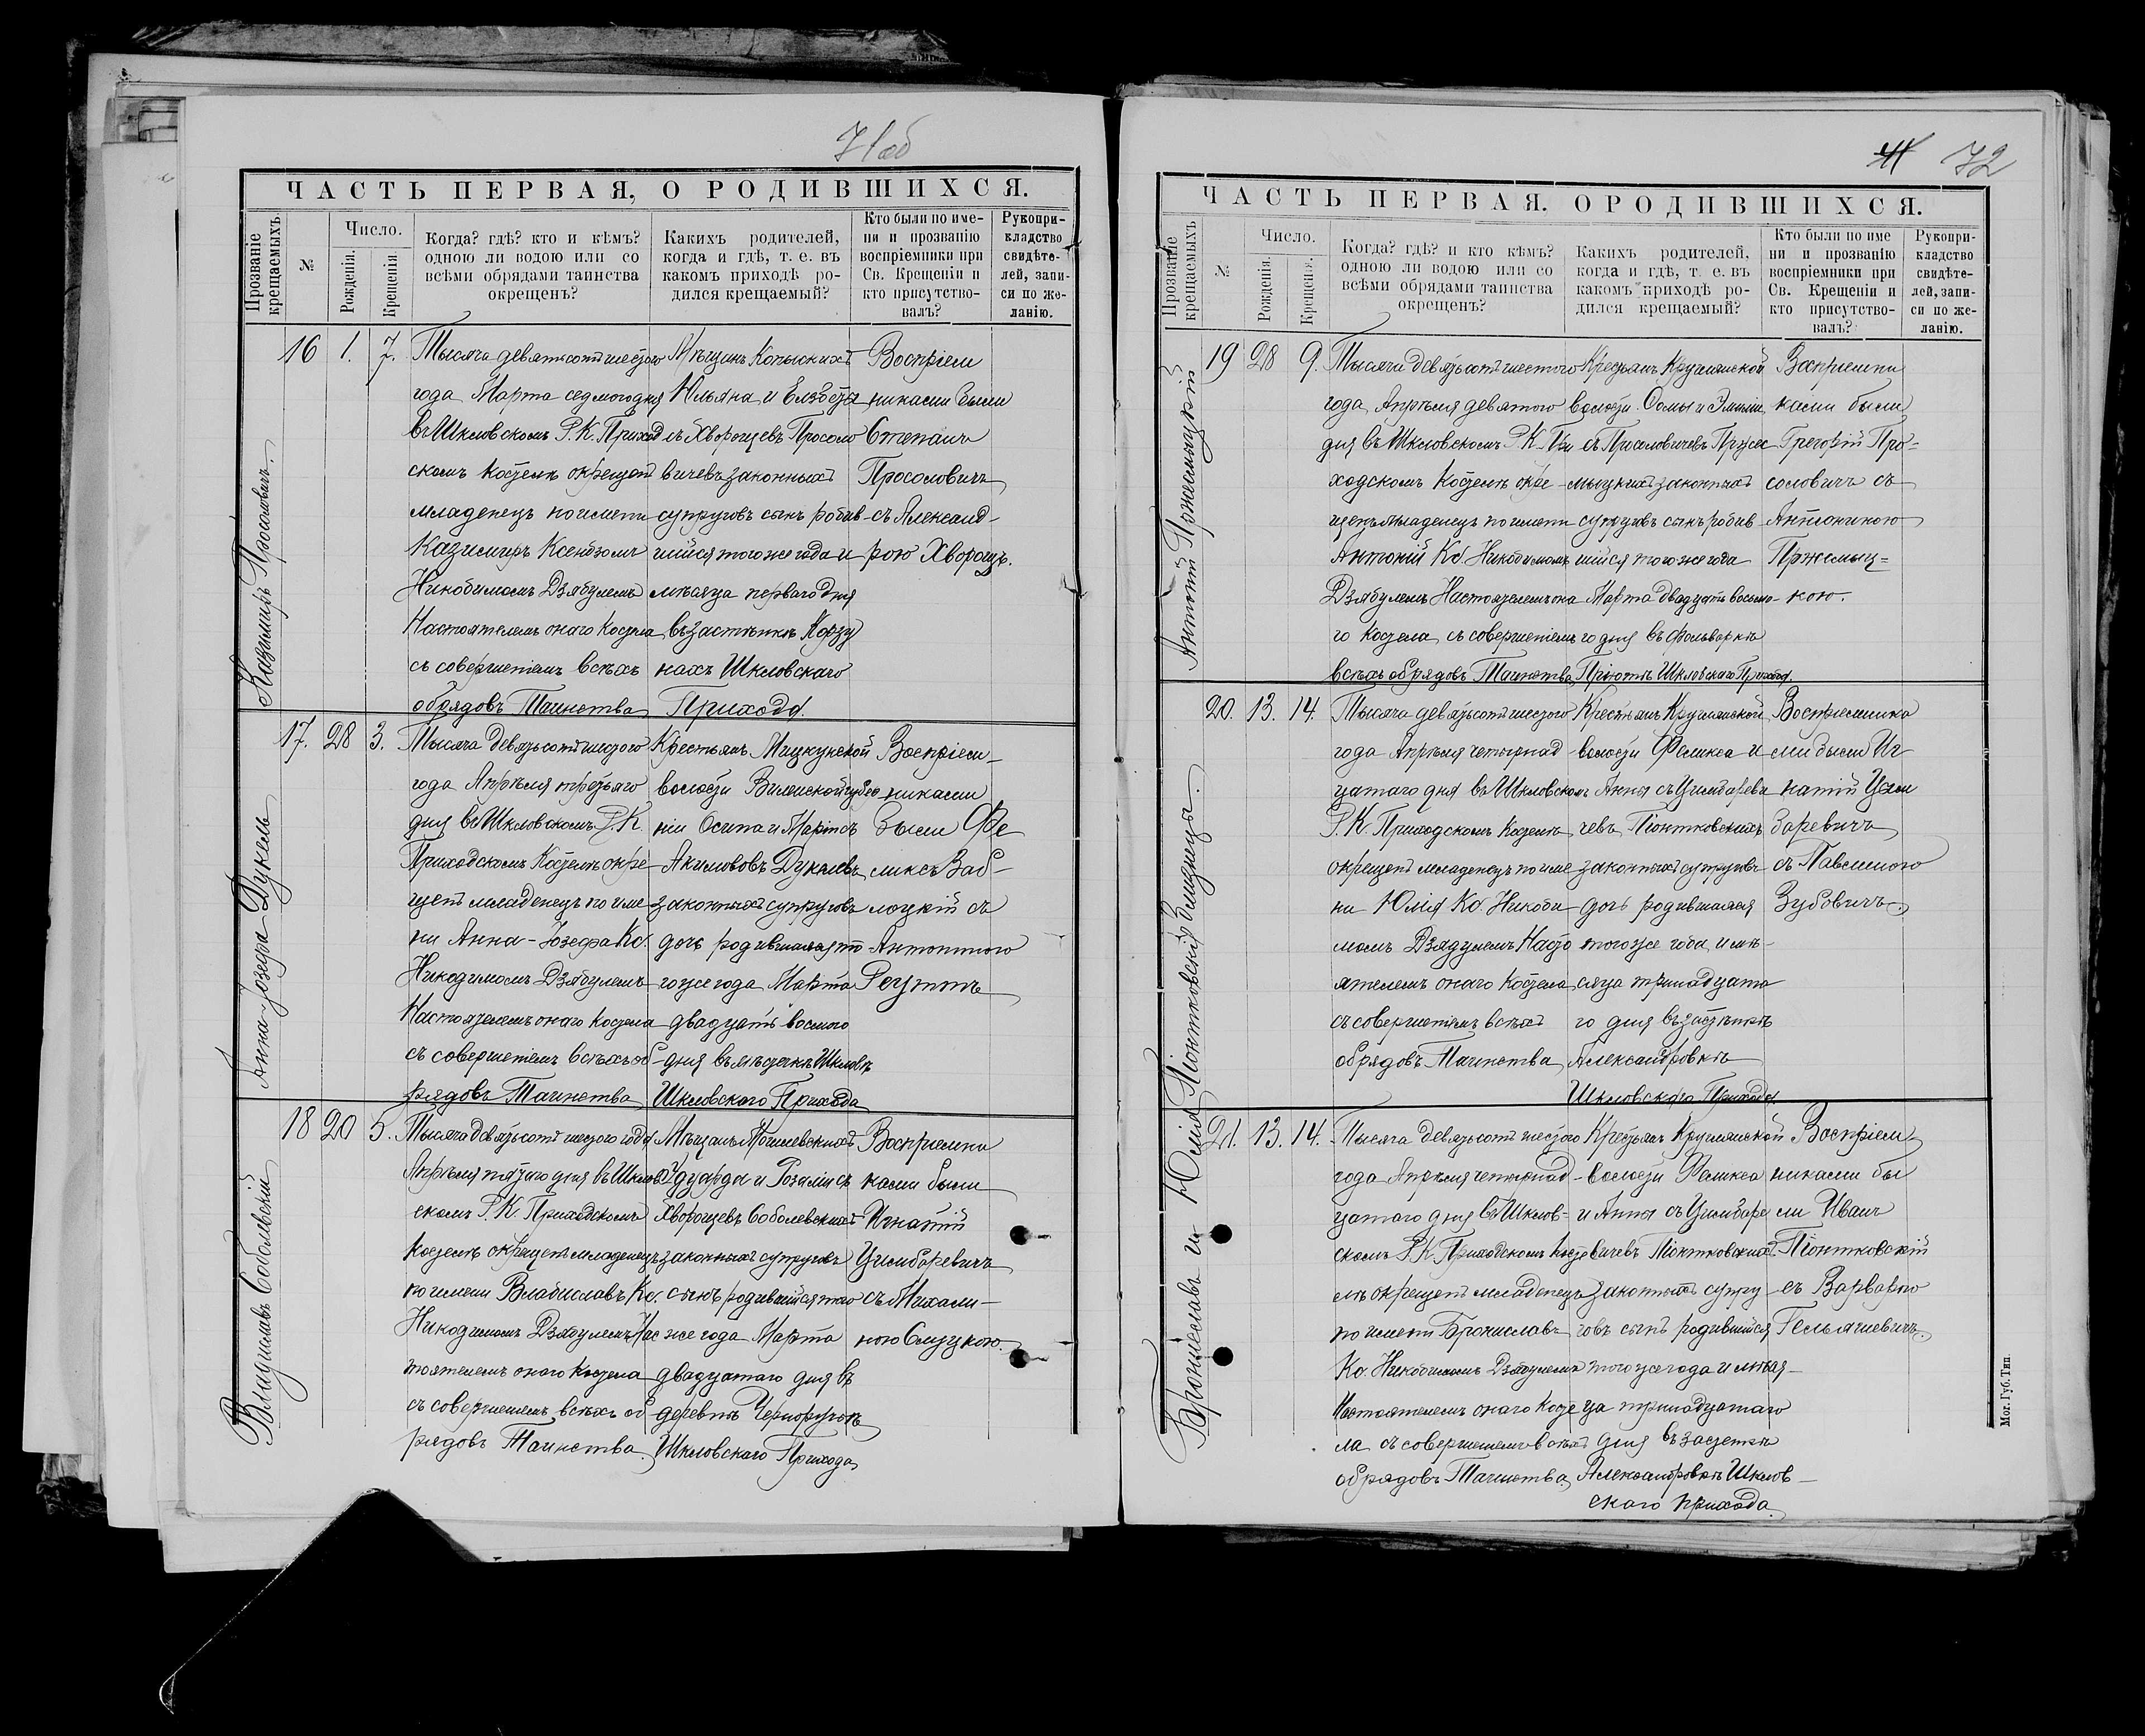 71об
ЧАСТЬ ПЕРВАЯ, О РОДИВШИХСЯ.
Прозваніе крещаемыхъ.
№
Число.
Рожденія.
Крещенія.
Когда? гдѣ? кто и кѣмъ?
одною ли водою или со
всѣми обрядами таинства
окрещенъ?
Какихъ родителей,
когда и гдѣ, т. е. въ
какомъ приходѣ ро-
дился крещаемый?
Кто были по име-
ни и прозванію
воспріемники при
Св. Крещеніи и
кто присутство-
валъ?
Рукопри-
кладство
свидѣте-
лей, запи-
си по же-
ланію.
Казимиръ Просоловичъ.
16 1. 7.
Тысяча девятьсотъ шестого
года Марта седмого дня
въ Шкловскомъ Р. К. Приход
скомъ костелѣ окрещенъ
младенецъ по имени
Казимиръ Ксендзомъ
Никодимомъ Дзядулемъ
Настоятелемъ онаго костела
съ совершеніемъ всѣхъ
обрядовъ Таинства
Мѣщанъ Копыскихъ
Юльяна и Елзбеты
съ Хворощевъ Просоло
вичевъ законныхъ
супруговъ сынъ родив-
шійся того же года и
мѣсяца перваго дня
въ застѣнкѣ Корзу
нахъ Шкловскаго
Прихода.
Воспріем
никами были
Степанъ
Просоловичъ
съ Александ-
рою Хворощъ.
Анна-Юзефа Дукель
17. 28 3.
Тысяча девятьсотъ шестого
года Апрѣля третьяго
дня въ Шкловскомъ Р. К.
Приходскомъ Костелѣ окре-
щенъ младенецъ по име
ни Анна-Юзефа Кс.
Никодимомъ Дзядулемъ
Настоятелемъ онаго костела
съ совершеніемъ всѣхъ об-
рядовъ Таинства
Крестьянъ Мицкунской
волости Виленской губер
ніи Осипа и Маріи съ
Акимовъ Дукелевъ
законныхъ супруговъ
дочь родившаяся то
го же года Марта
двадцать восмого
дня въ мѣстечкѣ Шкловѣ
Шкловского Прихода
Воспріем-
никами
были Фе
ликсъ Заб-
лоцкій съ
Антониною
Реуттъ
Владиславъ Собольевскій
18 20 5.
Тысяча девятьсотъ шестого года
Апрѣля пятаго дня въ Шклов
скомъ Р. К. Приходскомъ
костелѣ окрещенъ младенецъ
по имени Владиславъ Кс.
Никодимомъ Дзядулемъ Нас
тоятелемъ онаго костела
съ совершеніемъ всѣхъ об
рядовъ Таинства.
Мѣщанъ Могилевскихъ
Эдуарда и Розаліи съ
Хворощевъ Соболевскихъ
законныхъ супруговъ
сынъ родившійся того
же года Марта
двадцатаго дня въ
деревнѣ Черноручьѣ
Шкловского Прихода
Воспріемни
ками были
Игнатій
Цимбаревичъ
съ Михали-
ною Слуцкою.
72
ЧАСТЬ ПЕРВАЯ. О РОДИВШИХСЯ.
Прозваніе крещаемыхъ
№
Число.
Рожденія.
Крещенія.
Когда? гдѣ? и кто кѣмъ?
одною ли водою или со
всѣми обрядами таинства
окрещенъ?
Какихъ родителей,
когда и гдѣ, т. е. въ
какомъ приходѣ ро-
дился крещаемый?
Кто были по име
ни и прозванію
воспріемники при
Св. Крещеніи и
кто присутство-
валъ?
Рукопри-
кладство
свидѣте-
лей, запи-
си по же-
ланію.
Антоній Пржемыцкій
19 28 9.
Тысяча девятьсотъ шестого
года Апрѣля девятого
дня въ Шкловскомъ Р. К. При
ходскомъ Костелѣ окре-
щенъ младенецъ по имени
Антоній Кс. Никодимомъ
Дзядулемъ Настоятелемъ она
го костела съ совершеніемъ
всѣхъ обрядовъ Таинства
Крестьянъ Круглянской
волости Ѳомы и Эмиліи
съ Просоловичевъ Пржес
мыцкихъ законныхъ
супруговъ сынъ родив
шійся того же года
Марта двадцать восьмо-
го дня въ фольваркѣ
Пріютѣ Шкловскаго Прихода.
Воспріемни
ками были
Григорій Про-
соловичъ съ
Антониною
Пржемыц-
кою.
Юлія Піонтковскій близнецы.
20. 13. 14.
Тысяча девятьсотъ шестого
года Апрѣля четырнад
цатаго дня въ Шкловскомъ
Р. К. Приходскомъ Костелѣ
окрещенъ младенецъ по име
ни Юлія Кс. Никоди
момъ Дзядулемъ Насто
ятелемъ онаго костела
съ совершеніемъ всѣхъ
обрядовъ Таинства
Крестьянъ Круглянской
волости Феликса и
Анны съ Цимбареви
чевъ Піонтковскихъ
законныхъ супруговъ
дочь родившаяся
того же года и мѣ-
сяца тринадцата
го дня въ застѣнкѣ
Александровкѣ
Шкловскаго Прихода.
Воспріемника
ми были Иг
натій Цим
баревичъ
съ Павлиною
Зубовичъ.
Брониславъ и
21. 13. 14.
Тысяча девятьсотъ шестого
года Апрѣля четырнад-
цатаго дня въ Шклов-
скомъ Р. К. Приходскомъ косте
лѣ окрещенъ младенецъ
по имени Брониславъ
Кс. Никодимомъ Дзядулемъ
Настоятелемъ онаго косте
ла съ совершеніемъ всѣхъ
обрядовъ Таинства.
Крестьянъ Круглянской
волости Феликса
и Анны съ Цимбаре
вичевъ Піонтковскихъ
законныхъ супру
говъ сынъ родившійся
того же года и мѣся-
ца тринадцатаго
дня въ застѣнкѣ
Александровкѣ Шклов-
скаго прихода.
Воспріем
никами бы
ли Иванъ
Піонтковскій
съ Варварою
Гельячиевичъ.
Мог. Губ. Тип.